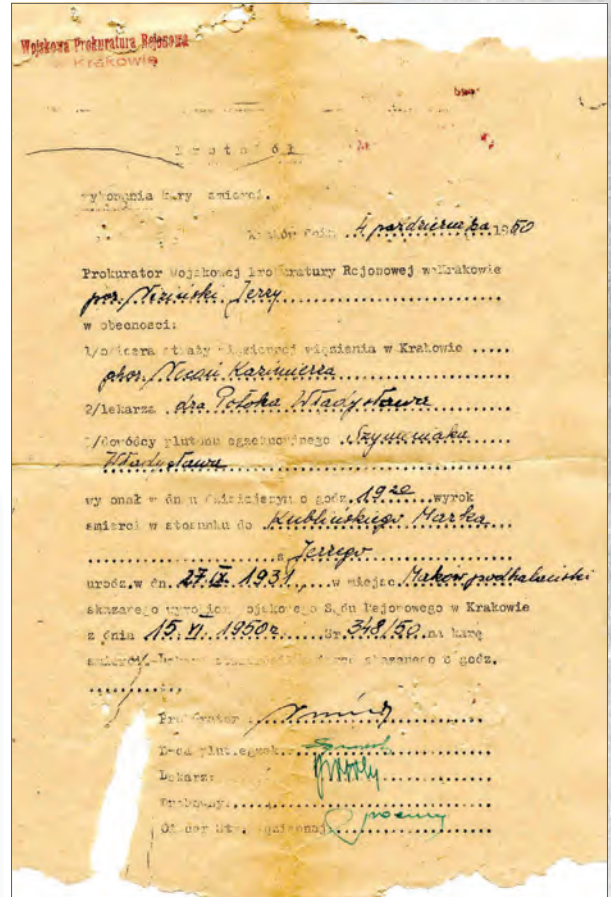 Wojskowa Prokuratura Rejonowa
w Krakowie
Protokół
wykonania kary śmierci.
Kraków dnia 4 października 1950
Prokurator Wojskowej Prokuratury Rejonowej w Krakowie
por. Jerzy
w obecności:
1/oficera straży więziennej więzienia w Krakowie .....
Kazimierza
2/lekarza dra Potoka Władysława
3/dowódcy plutonu egzekucyjnego Szymoniaka
Władysława
wykonał w dniu dzisiejszym o godz. 1920 wyrok
śmierci w stosunku do Kublińskiego Marka
s. Jerzego
urodz.w dn. 27.IX.1931 w miejsc. Maków podhalański
skazanego wyrokiem Wojskowego Sądu Rejonowego w Krakowie
z dnia 15.VI.1950r. Sr.348/50 na karę
śmierci. skazanego o godz.
Prokurator
D-ca plut.egzek.
Lekarz:
Duchowny.
Oficer Str. Więziennej